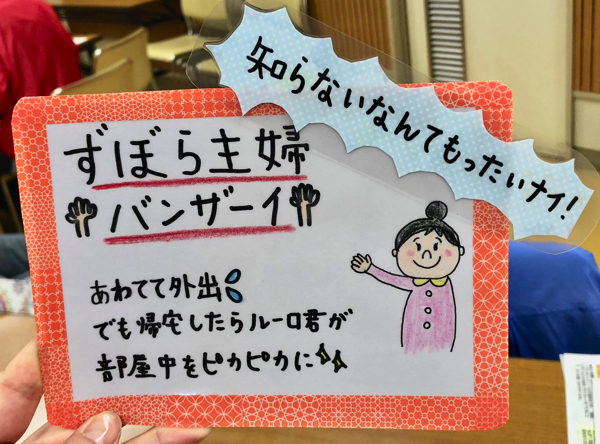 知らないなんてもったいナイ!
ずぼら主婦
バンザーイ
あわてて外出
でも帰宅したらルーロ君が
部屋中をピカピカに